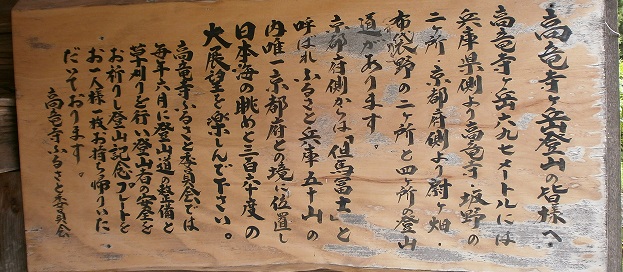 高竜寺ヶ岳登山の皆様へ
高竜寺ヶ岳六九七メートルには
兵庫県側より高竜寺・坂野の
二ヶ所・京都府側より尉ヶ畑・
布袋野の二ヶ所と四ヶ所の登山
道があります。
京都府側からは「但馬富士」と
呼ばれふるさと兵庫五十山の
内唯一京都府との境に位置し
日本海の眺めと三百六十度の
大展望を楽しんで下さい。
高竜寺ふるさと委員会では
毎年六月に登山道の整備と
草刈りを行い登山者の安全を
お祈りし登山記念プレートを
お一人様一枚お持ち帰りいた
だいております。
高竜寺ふるさと委員会